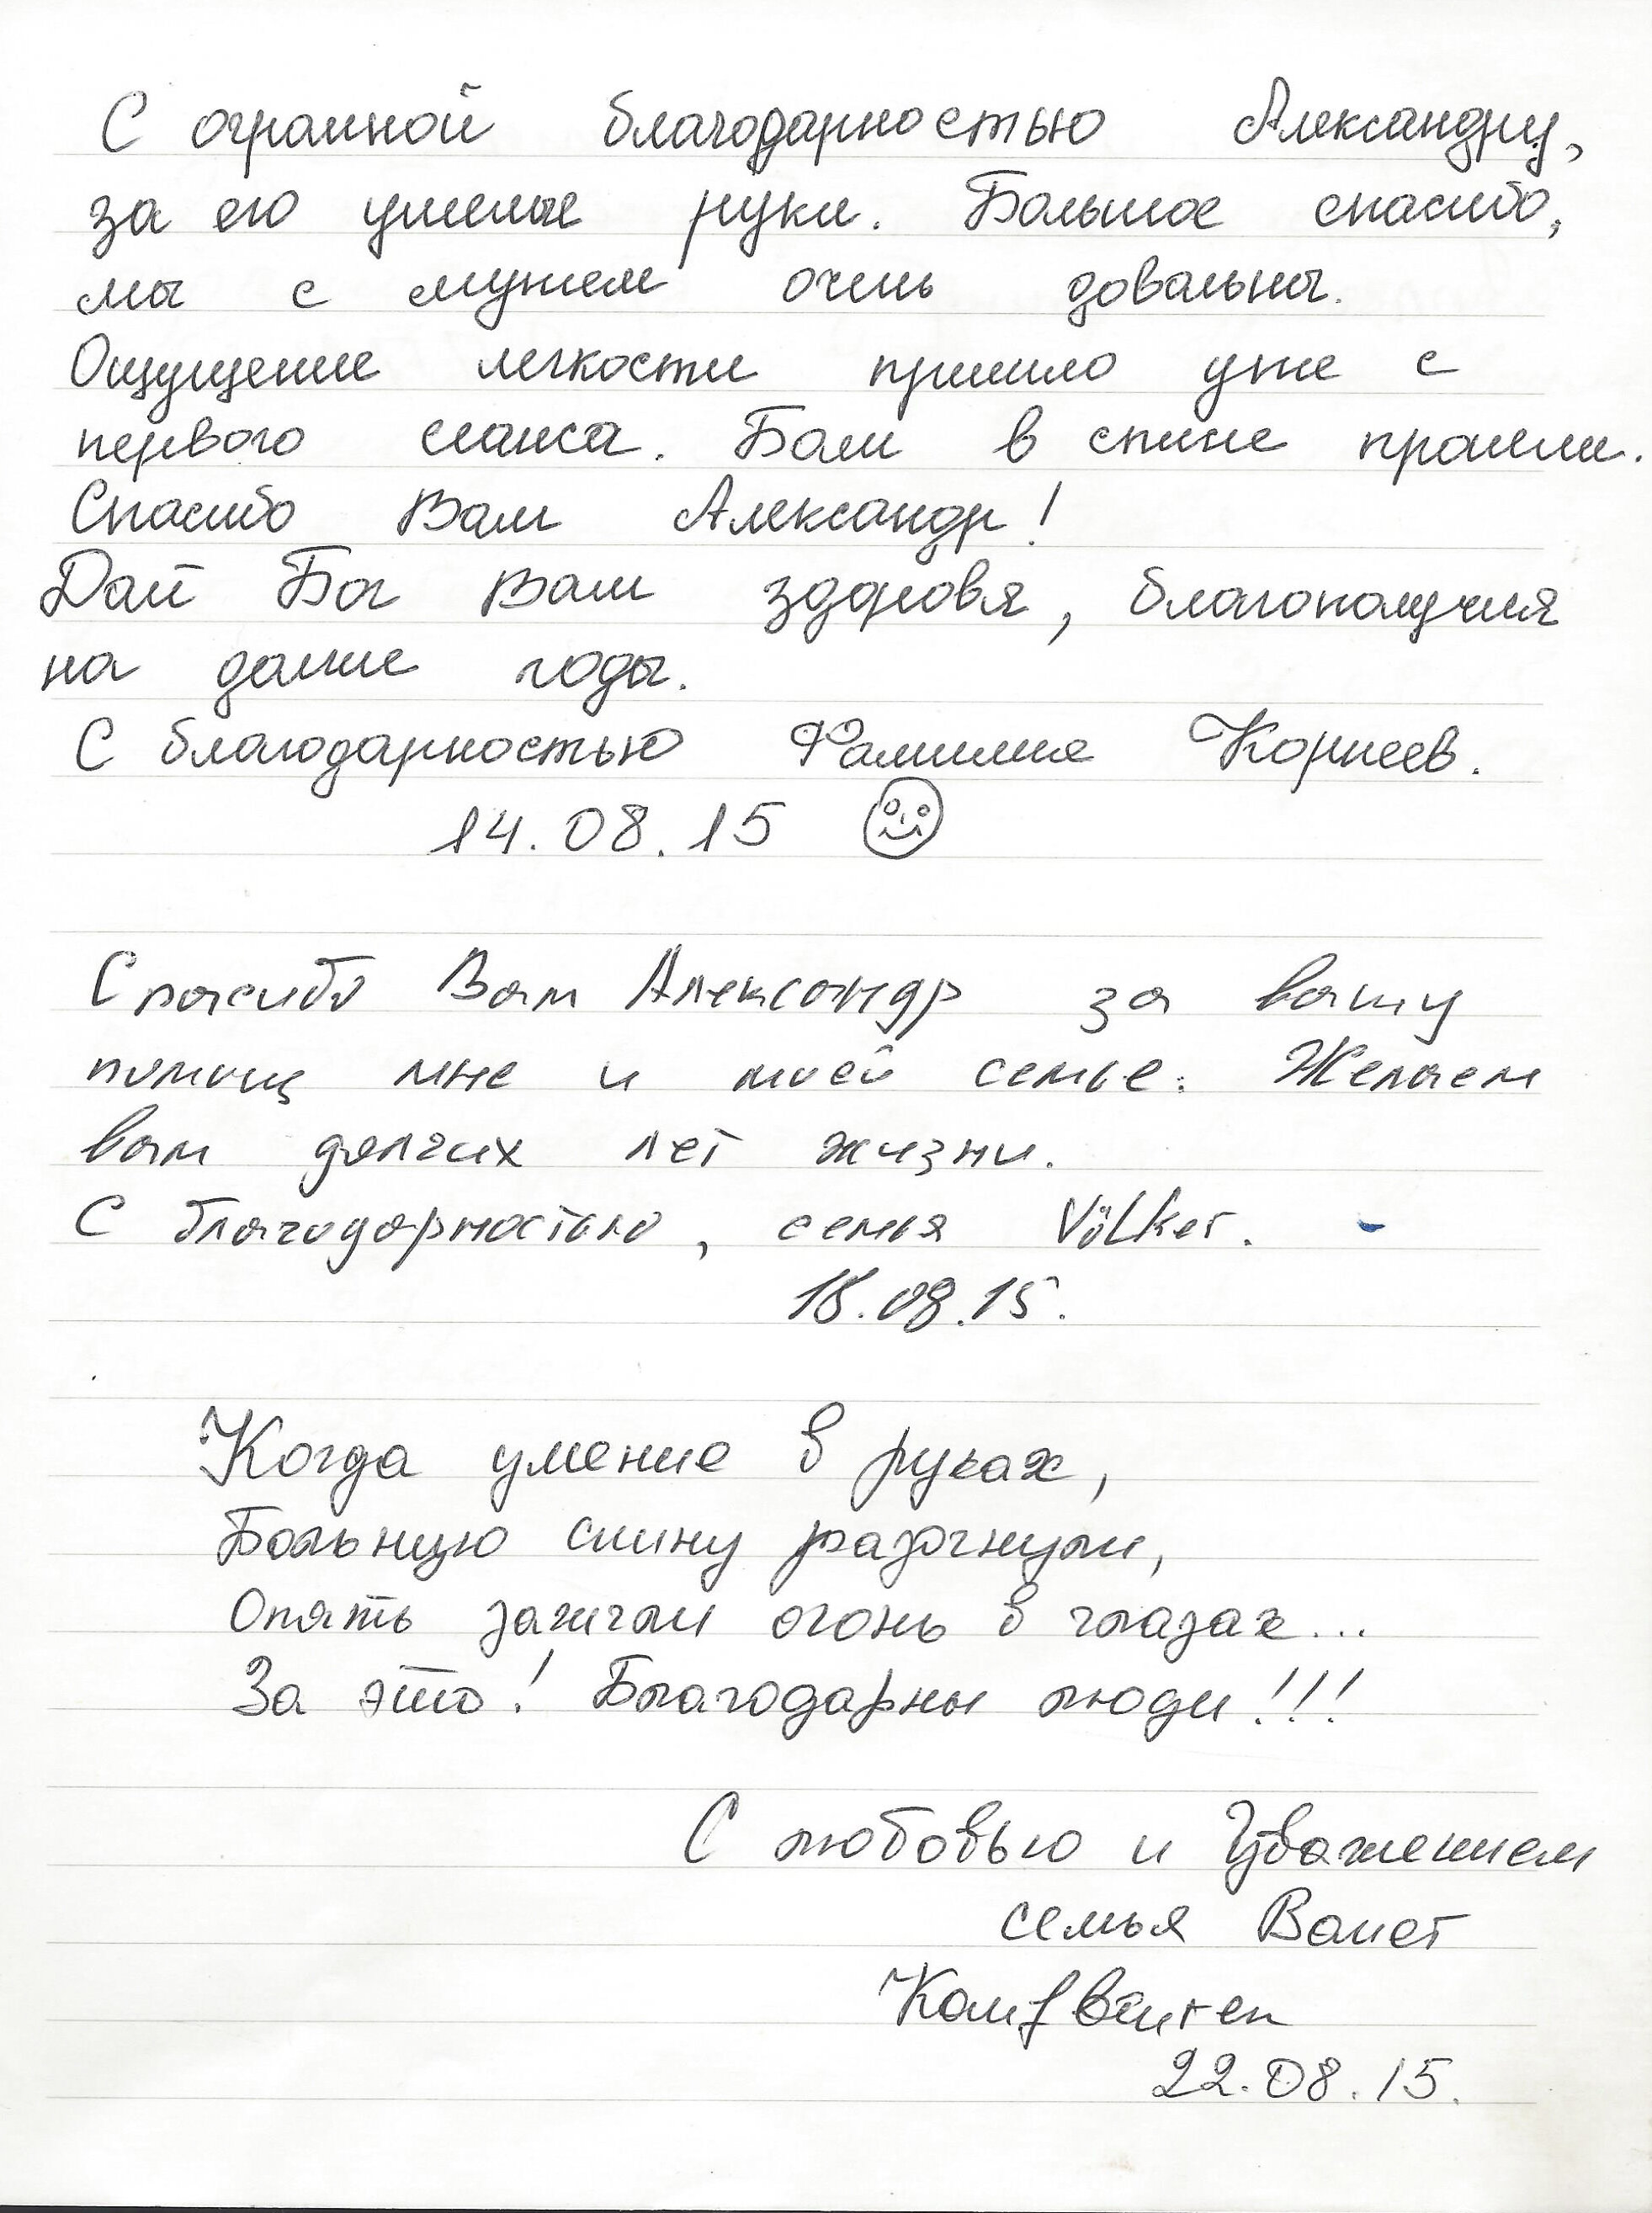 С огромной благодарностью Александру,
за его умелые руки. Большое спасибо,
мы с мужем очень довальны.
Ощущение легкости пришло уже с
первого сеанса. Боли в спине прошли.
Спасибо Вам Александр!
Дай Бог Вам здоровя, благополучия
на долгие годы.
С благодарностью Фамилия Корнеев.
14.08.15
Спасибо Вам Александр за вашу
помощ мне и моей семье. Желаем
вам долгих лет жизни.
С благодарностью, семья Völker.
18.08.15.
Когда умение в руках,
Больную спину разогнули,
Опять зажгли огонь в глазах...
За это! Благодарны люди!!!
С любовью и Уважением
семья
22.08.15.